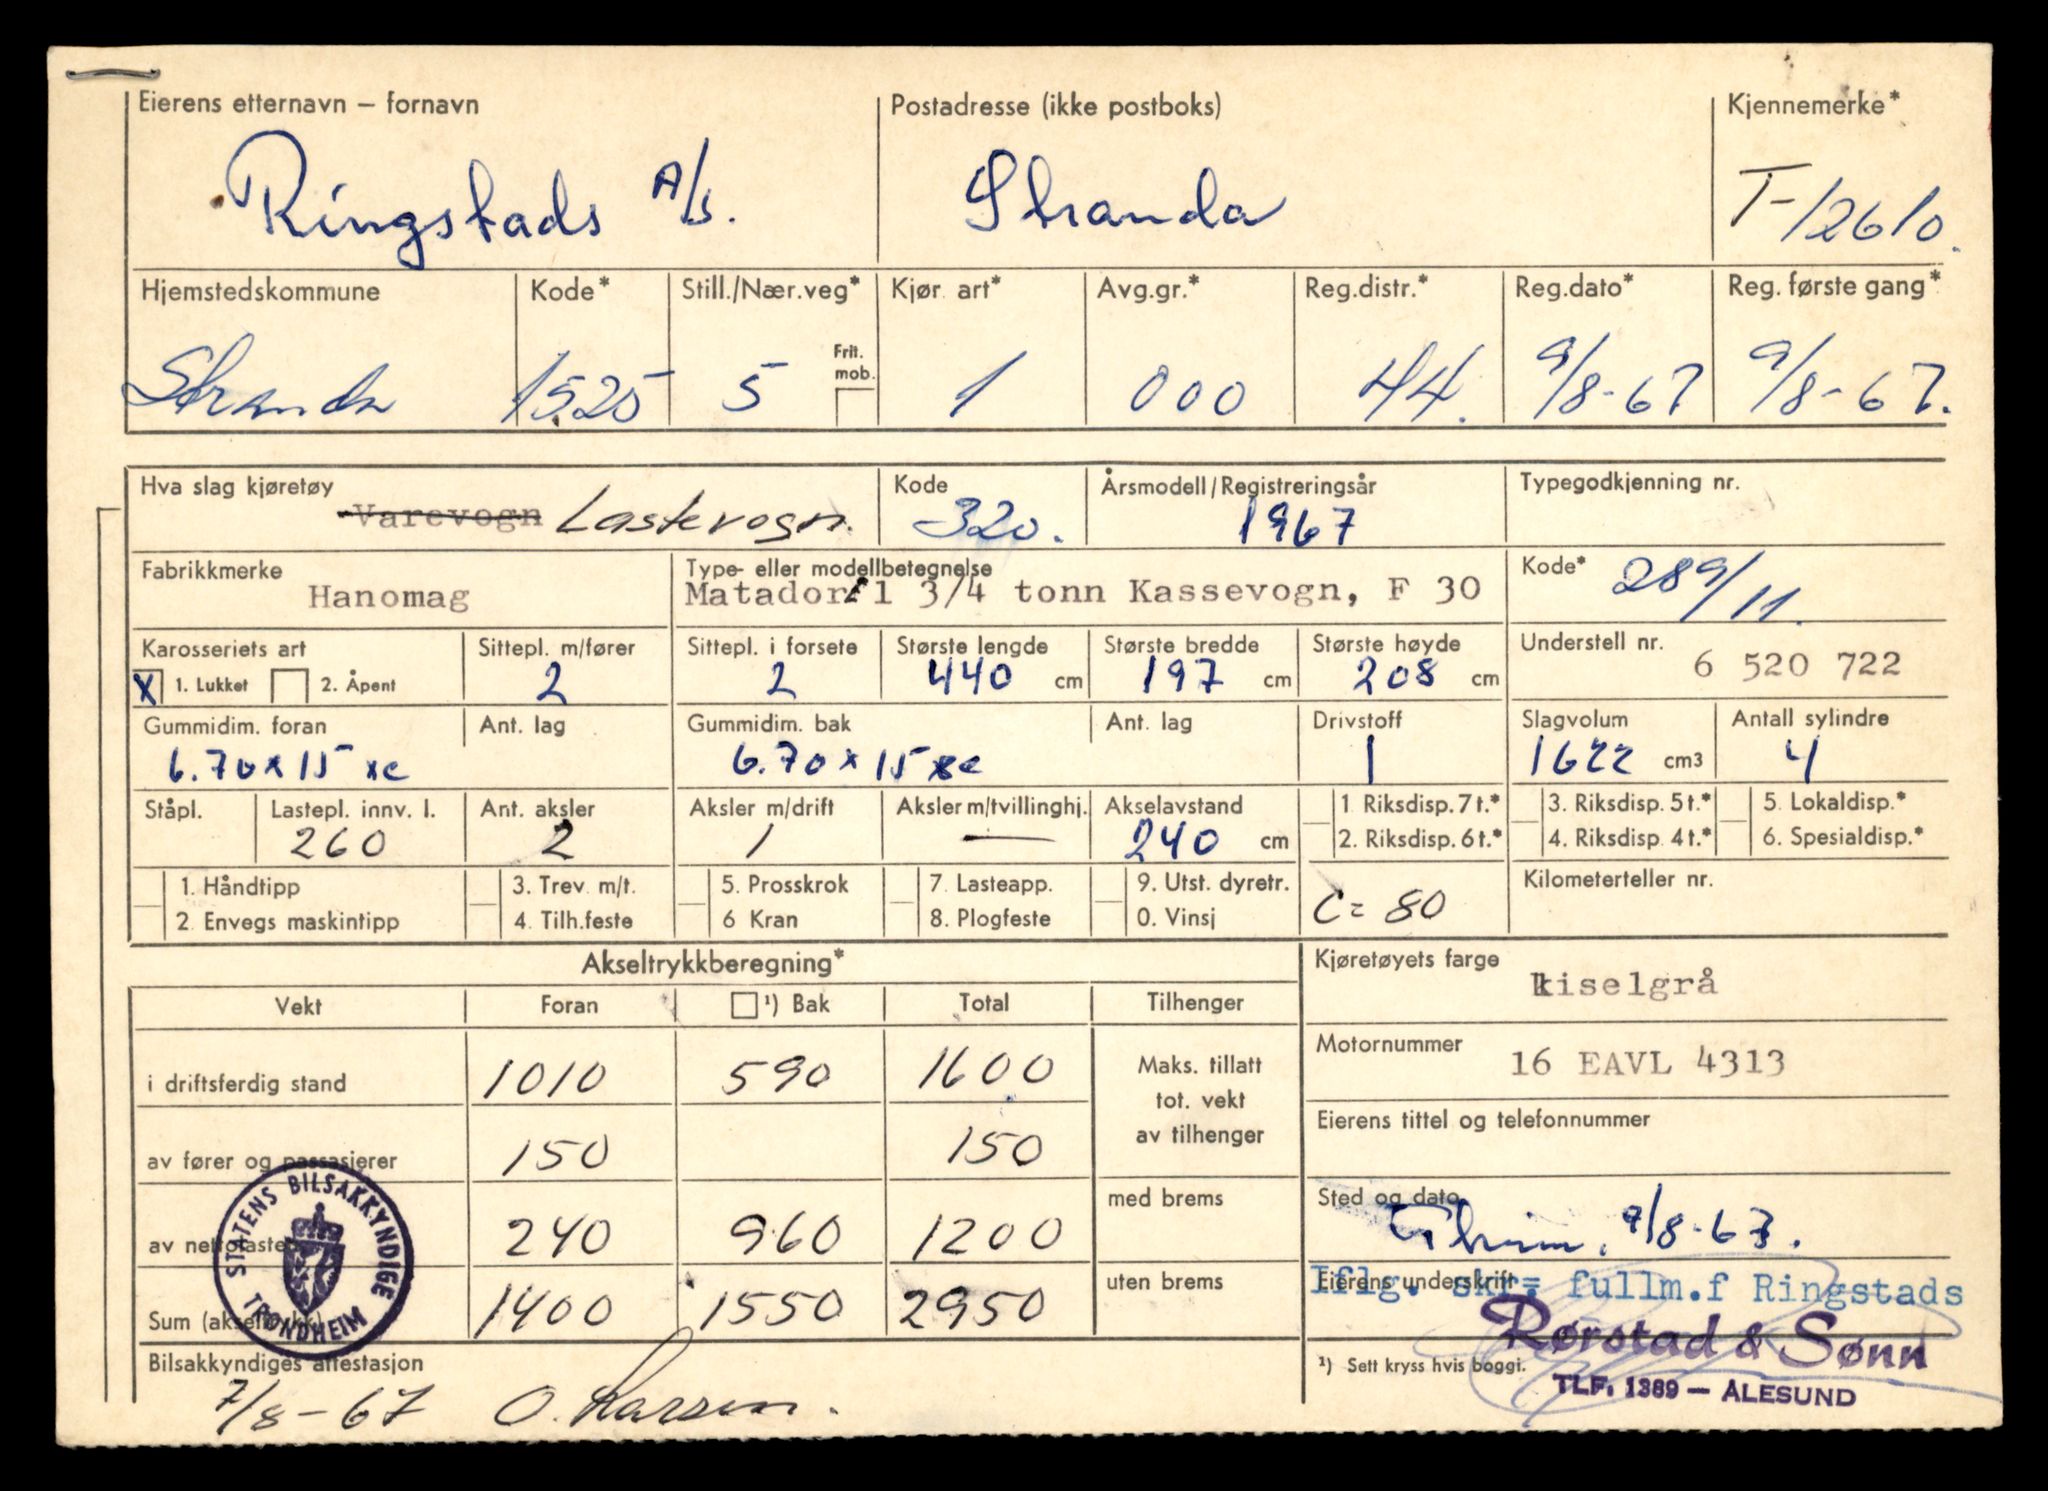 Eierens etternavn – fornavn Postadresse (ikke postboks) Kjennemerke*
Ringstads A/S. Stranda T-12610.
Hjemstedskommune Kode* Still./Nær.veg* Kjør. art* Avg.gr.* Reg.distr.* Reg.dato* Reg. første gang*
Frit. mob.
Stranda 1525 5 1 000 44. 9/8-67 9/8-67.
Hva slag kjøretøy Kode Årsmodell/Registreringsår Typegodkjenning nr.
Varevogn Lastevogn. 320. 1967
Fabrikkmerke Type- eller modellbetegnelse Kode*
Hanomag Matador 1 3/4 tonn Kassevogn, F 30 289/11.
Karosseriets art Sittepl. m/fører Sittepl. i forsete Største lengde Største bredde Største høyde Understell nr.
X 1. Lukket 2. Åpent 2 2 440 cm 197 cm 208 cm 6 520 722
Gummidim. foran Ant. lag Gummidim. bak Ant. lag Drivstoff Slagvolum Antall sylindre
6.70 x 15 xc 6.70 x 15 xc 1 1622 cm3 4
Ståpl. Lastepl. innv. l. Ant. aksler Aksler m/drift Aksler m/tvillinghj. Akselavstand 1. Riksdisp. 7 t.* 3. Riksdisp. 5 t.* 5. Lokaldisp.*
260 2 1 — 240 cm 2. Riksdisp. 6 t.* 4. Riksdisp. 4 t.* 6. Spesialdisp.*
1. Håndtipp 3. Trev. m/t. 5. Prosskrok 7. Lasteapp. 9. Utst. dyretr. C = 80 Kilometerteller nr.
2. Envegs maskintipp 4. Tilh.feste 6 Kran 8. Plogfeste 0. Vinsj
Akseltrykkberegning* Kjøretøyets farge
kiselgrå
Vekt Foran ¹) Bak Total Tilhenger
i driftsferdig stand 1010 590 1600 Maks. tillatt tot. vekt av tilhenger
Motornummer
16 EAVL 4313
Eierens tittel og telefonnummer
av fører og passasjerer 150 150
STATENS BILSAKKYNDIGE TRONDHEIM
av nettolasten 240 960 1200 med brems
Sted og dato
Theim. 9/8-67.
Sum (akseltrykk) 1400 1550 2950 uten brems
Eierens underskrift
Iflg. skr. fullm.f Ringstads
Rørstad & Sønn
TLF. 1389 — ÅLESUND
Bilsakkyndiges attestasjon ¹) Sett kryss hvis boggi.
7/8-67 O. Larsen.